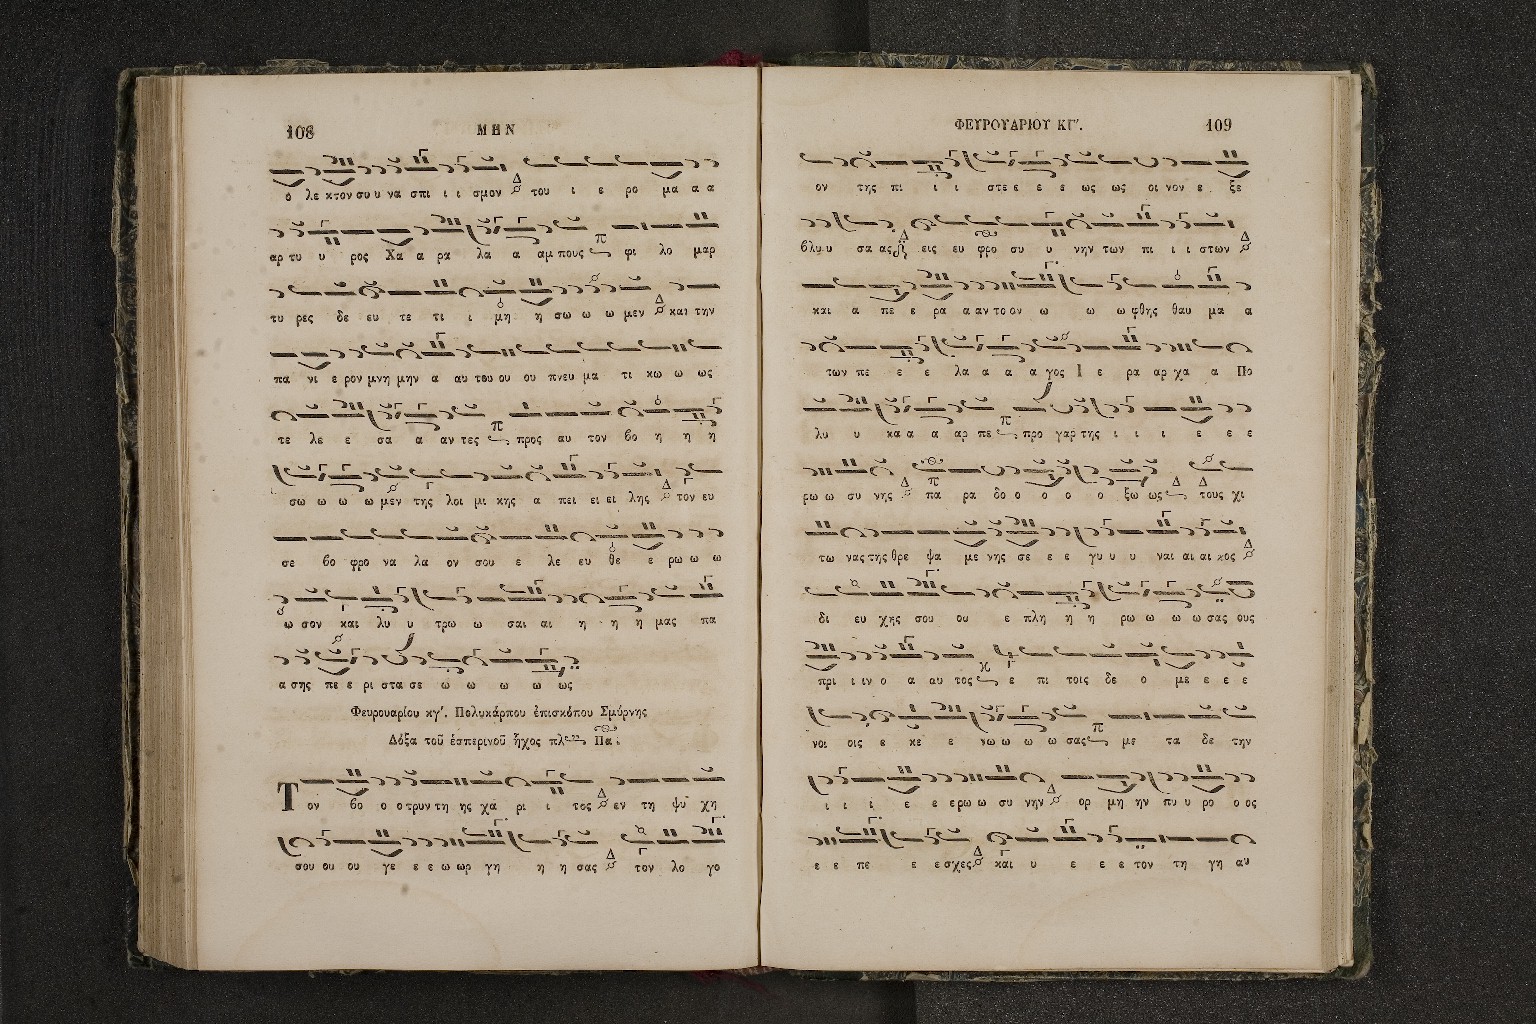 108 ΜΗΝ
ο λε κτον συ υ να σπι ι ι σμον του ι ε ρο μα α α
αρ τυ υ ρος Χα α ρα λα α αμ πους φι λο μαρ
τυ ρες δε ευ τε τι ι μη η σω ω ω μεν και την
πα νι ε ρον μνη μην α αυ του ου ου πνευ μα τι κω ω ως
τε λε ε σα α αν τες προς αυ τον βο η η η
σω ω ω ω μεν της λοι μι κης α πει ει ει λης τον ευ
σε βο φρο να λα ον σου ε λε ευ θε ε ρω ω ω
ω σον και λυ υ τρω ω σαι αι η η η μας πα
α σης πε ε ρι στα σε ω ω ω ω ως
Φευρουαρίου κγʹ. Πολυκάρπου ἐπισκόπου Σμύρνης
Δόξα τοῦ ἑσπερινοῦ ἦχος πλ Πα
Τον βο ο ο τρυν τη ης χα ρι ι τος εν τη ψυ χη
σου ου ου γε ε ε ω ωρ γη η η σας τον λο γο
ΦΕΥΡΟΥΑΡΙΟΥ ΚΓʹ. 109
ον της πι ι ι στε ε ε ε ως ως οι νον ε ξε
βλυ υ σα ας εις ευ φρο συ υ νην των πι ι ι στων
και α πε ε ρα α αν το ον ω ω ω φθης θαυ μα α
των πε ε ε λα α α α γος Ι ε ρα αρ χα α Πο
λυ υ κα α α αρ πε προ γαρ της ι ι ι ε ε ε
ρω ω συ νης πα ρα δο ο ο ο ο ξω ως τους χι
τω νας της θρε ψα με νης σε ε ε γυ υ υ ναι αι αι κος
δι ευ χης σου ου ε πλη η η ρω ω ω ω σας ους
πρι ι ιν ο α αυ τος ε πι τοις δε ο με ε ε ε
νοι οις ε κε ε νω ω ω ω σας με τα δε την
ι ι ι ε ε ε ρω ω συ νην ορ μη ην πυ υ ρο ο ος
ε ε πε ε ε σχες και υ ε ε ε τον τη γη αυ